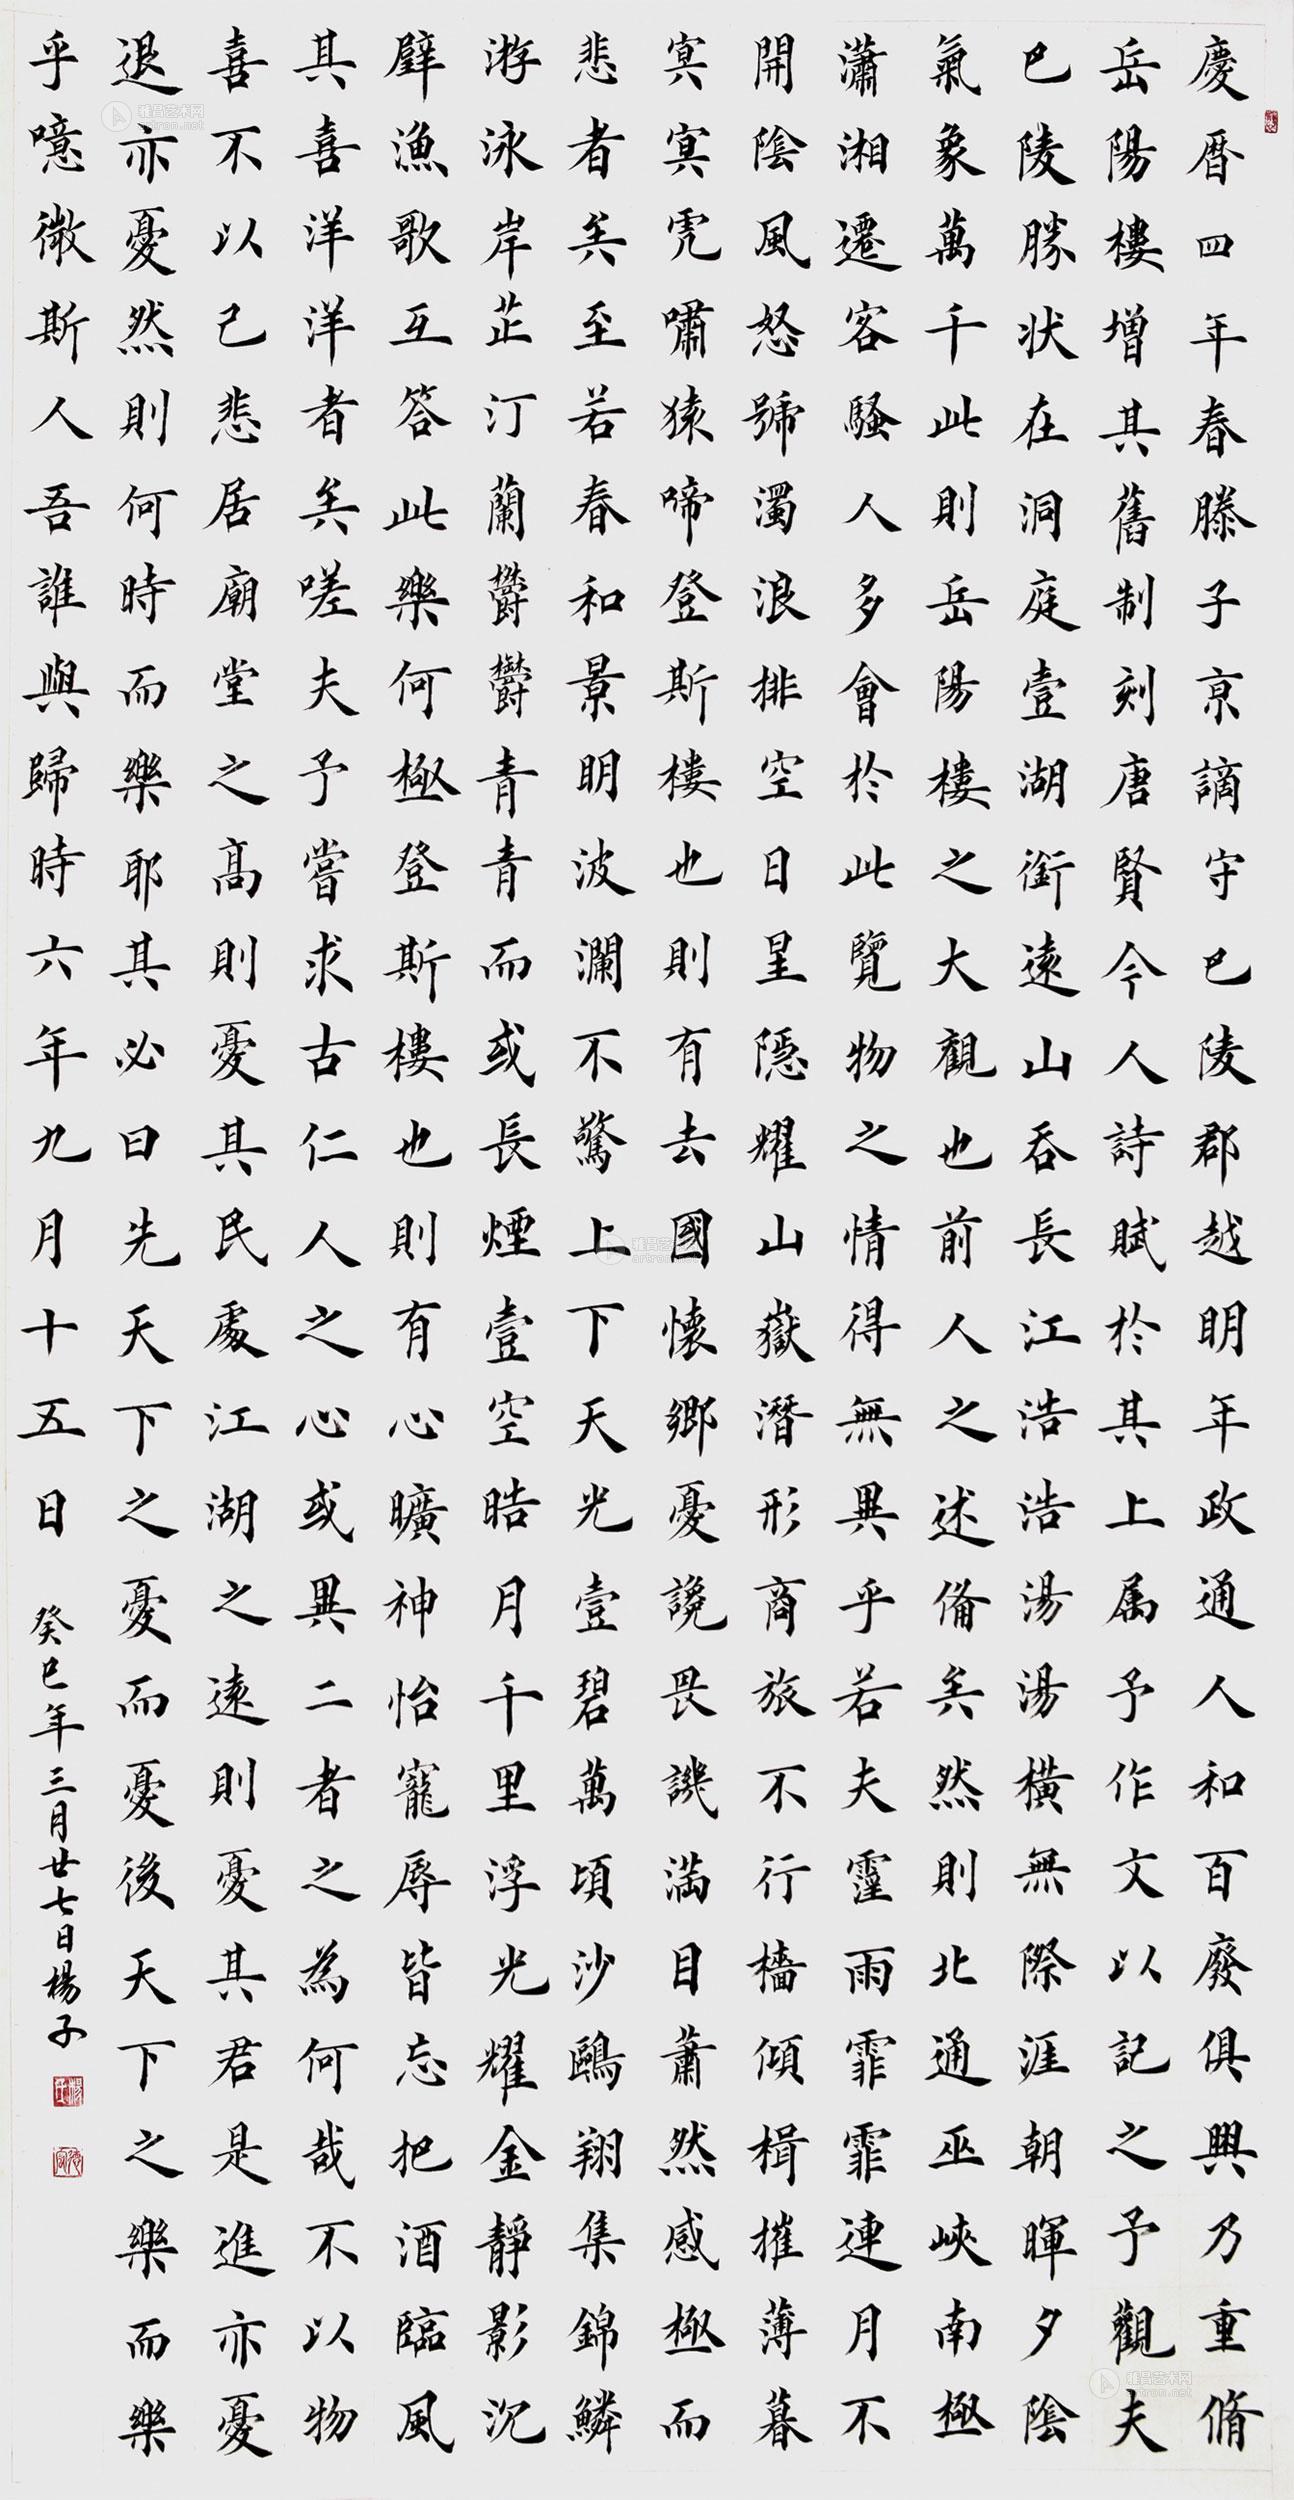 慶暦四年春滕子京謫守巴陵郡越明年政通人和百廢俱興乃重脩
岳陽樓增其舊制刻唐賢今人詩賦於其上属予作文以記之予觀夫
巴陵勝状在洞庭壹湖銜遠山吞長江浩浩湯湯橫無際涯朝暉夕陰
氣象萬千此則岳陽樓之大觀也前人之述備矣然則北通巫峽南極
瀟湘遷客騷人多會於此覽物之情得無異乎若夫霪雨霏霏連月不
開陰風怒號濁浪排空日星隱耀山嶽潛形商旅不行檣傾楫摧薄暮
冥冥虎嘯猿啼登斯樓也則有去國懷鄉憂讒畏譏滿目蕭然感極而
悲者矣至若春和景明波瀾不驚上下天光壹碧萬頃沙鷗翔集錦鱗
游泳岸芷汀蘭鬱鬱青青而或長煙壹空皓月千里浮光耀金靜影沉
璧漁歌互答此樂何極登斯樓也則有心曠神怡寵辱皆忘把酒臨風
其喜洋洋者矣嗟夫予嘗求古仁人之心或異二者之為何哉不以物
喜不以己悲居廟堂之高則憂其民處江湖之遠則憂其君是進亦憂
退亦憂然則何時而樂耶其必曰先天下之憂而憂後天下之樂而樂
乎噫微斯人吾誰與歸時六年九月十五日 癸巳年三月廿七日楊子
雅昌艺术网
artron.net
雅昌艺术网
artron.net
雅昌艺术网
artron.net